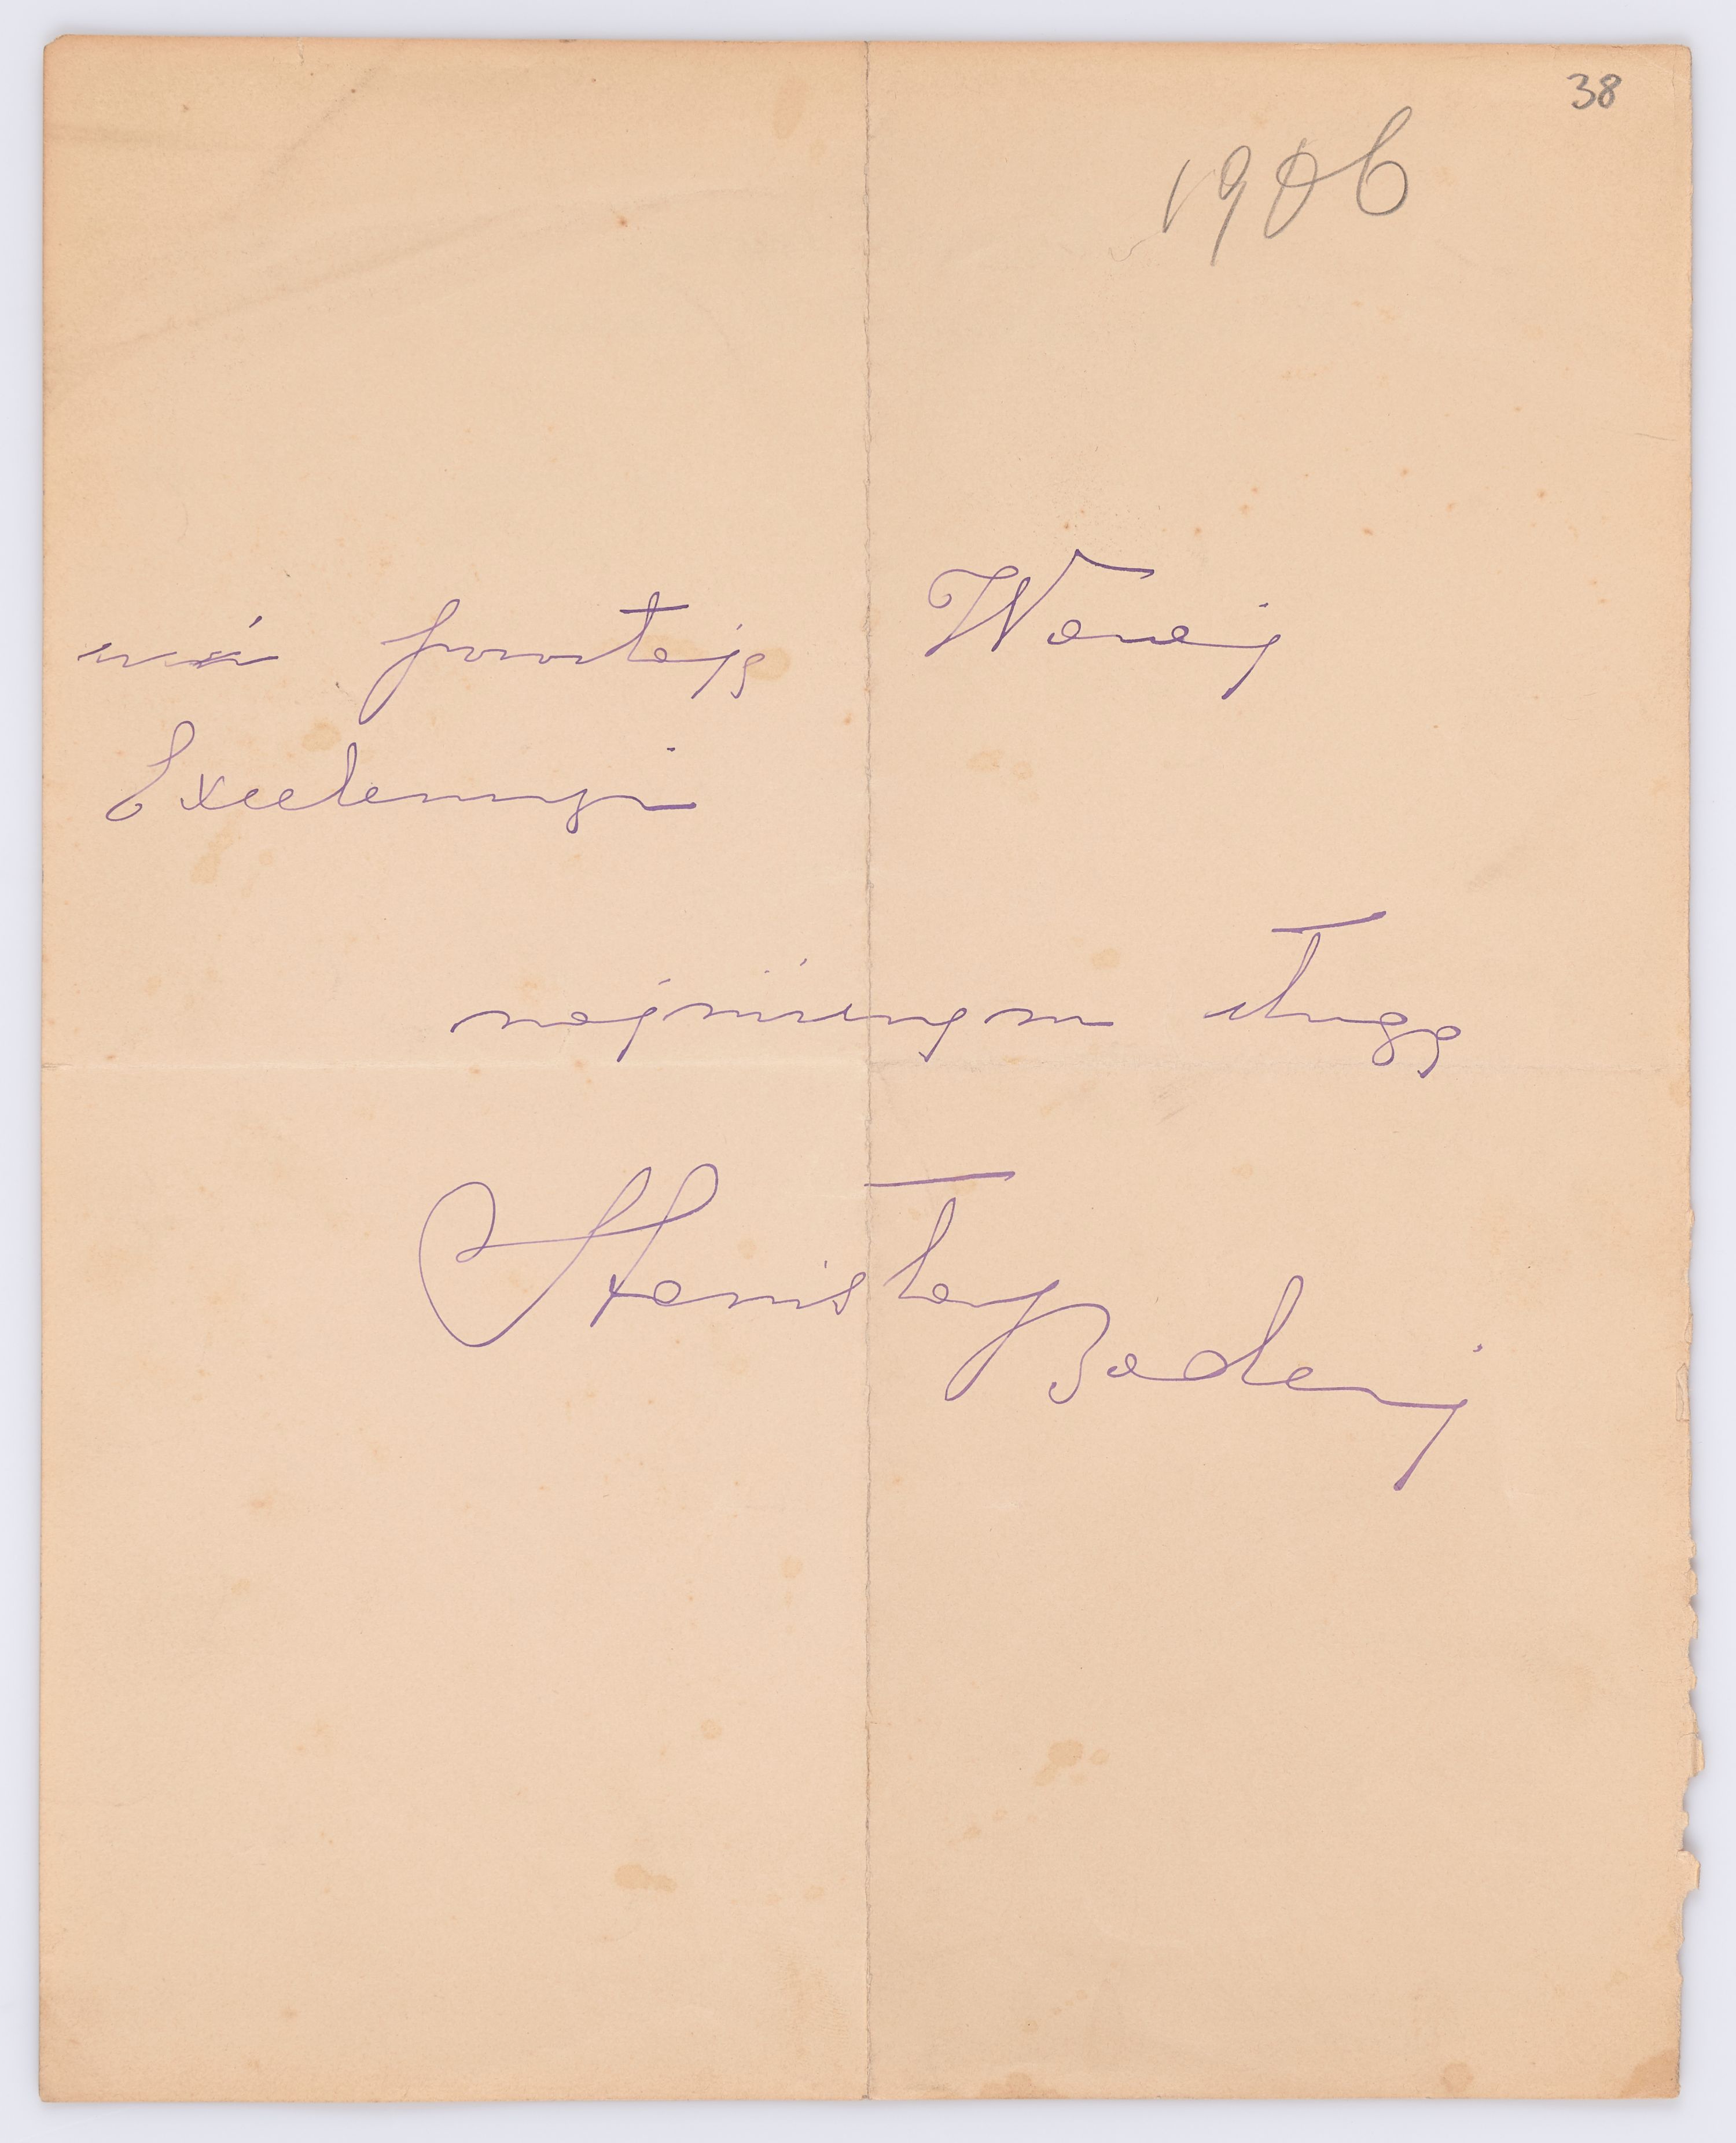 38
1906
pozostaję Waszej
Excelencyi
najniższym sługą
Stanisław Badeni